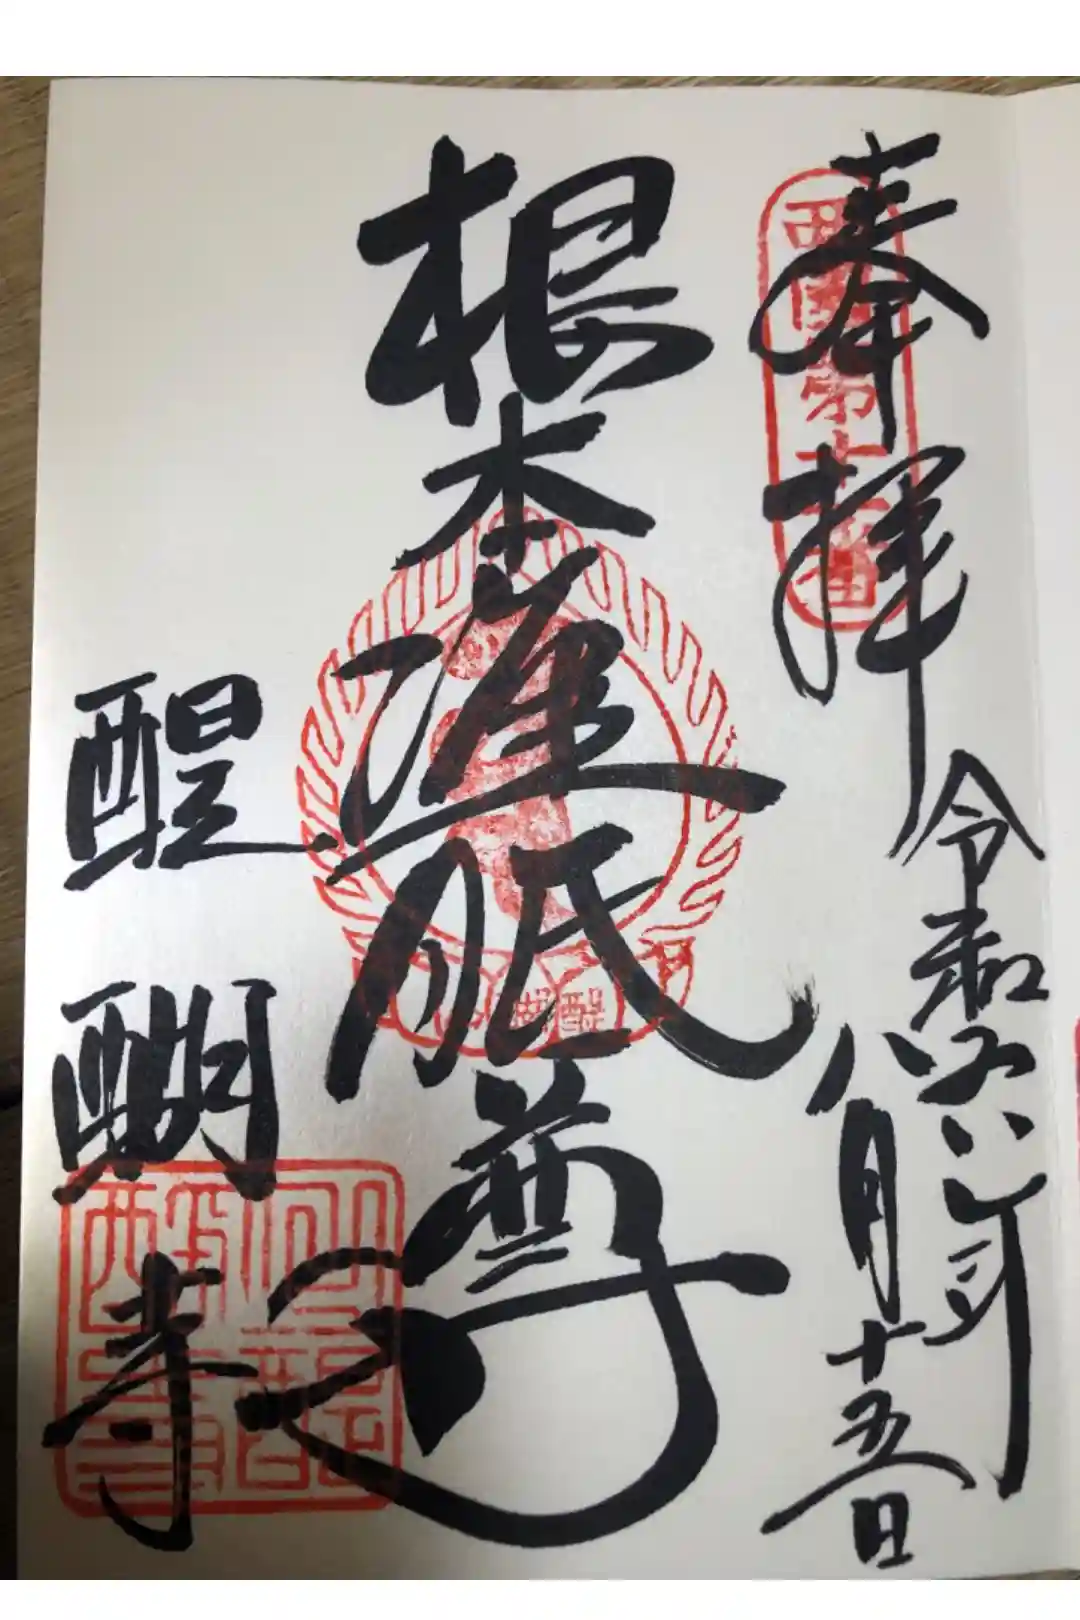 奉拝
令和六年
八月十五日
根本准胝尊
醍醐寺
西国第十一番
醍醐